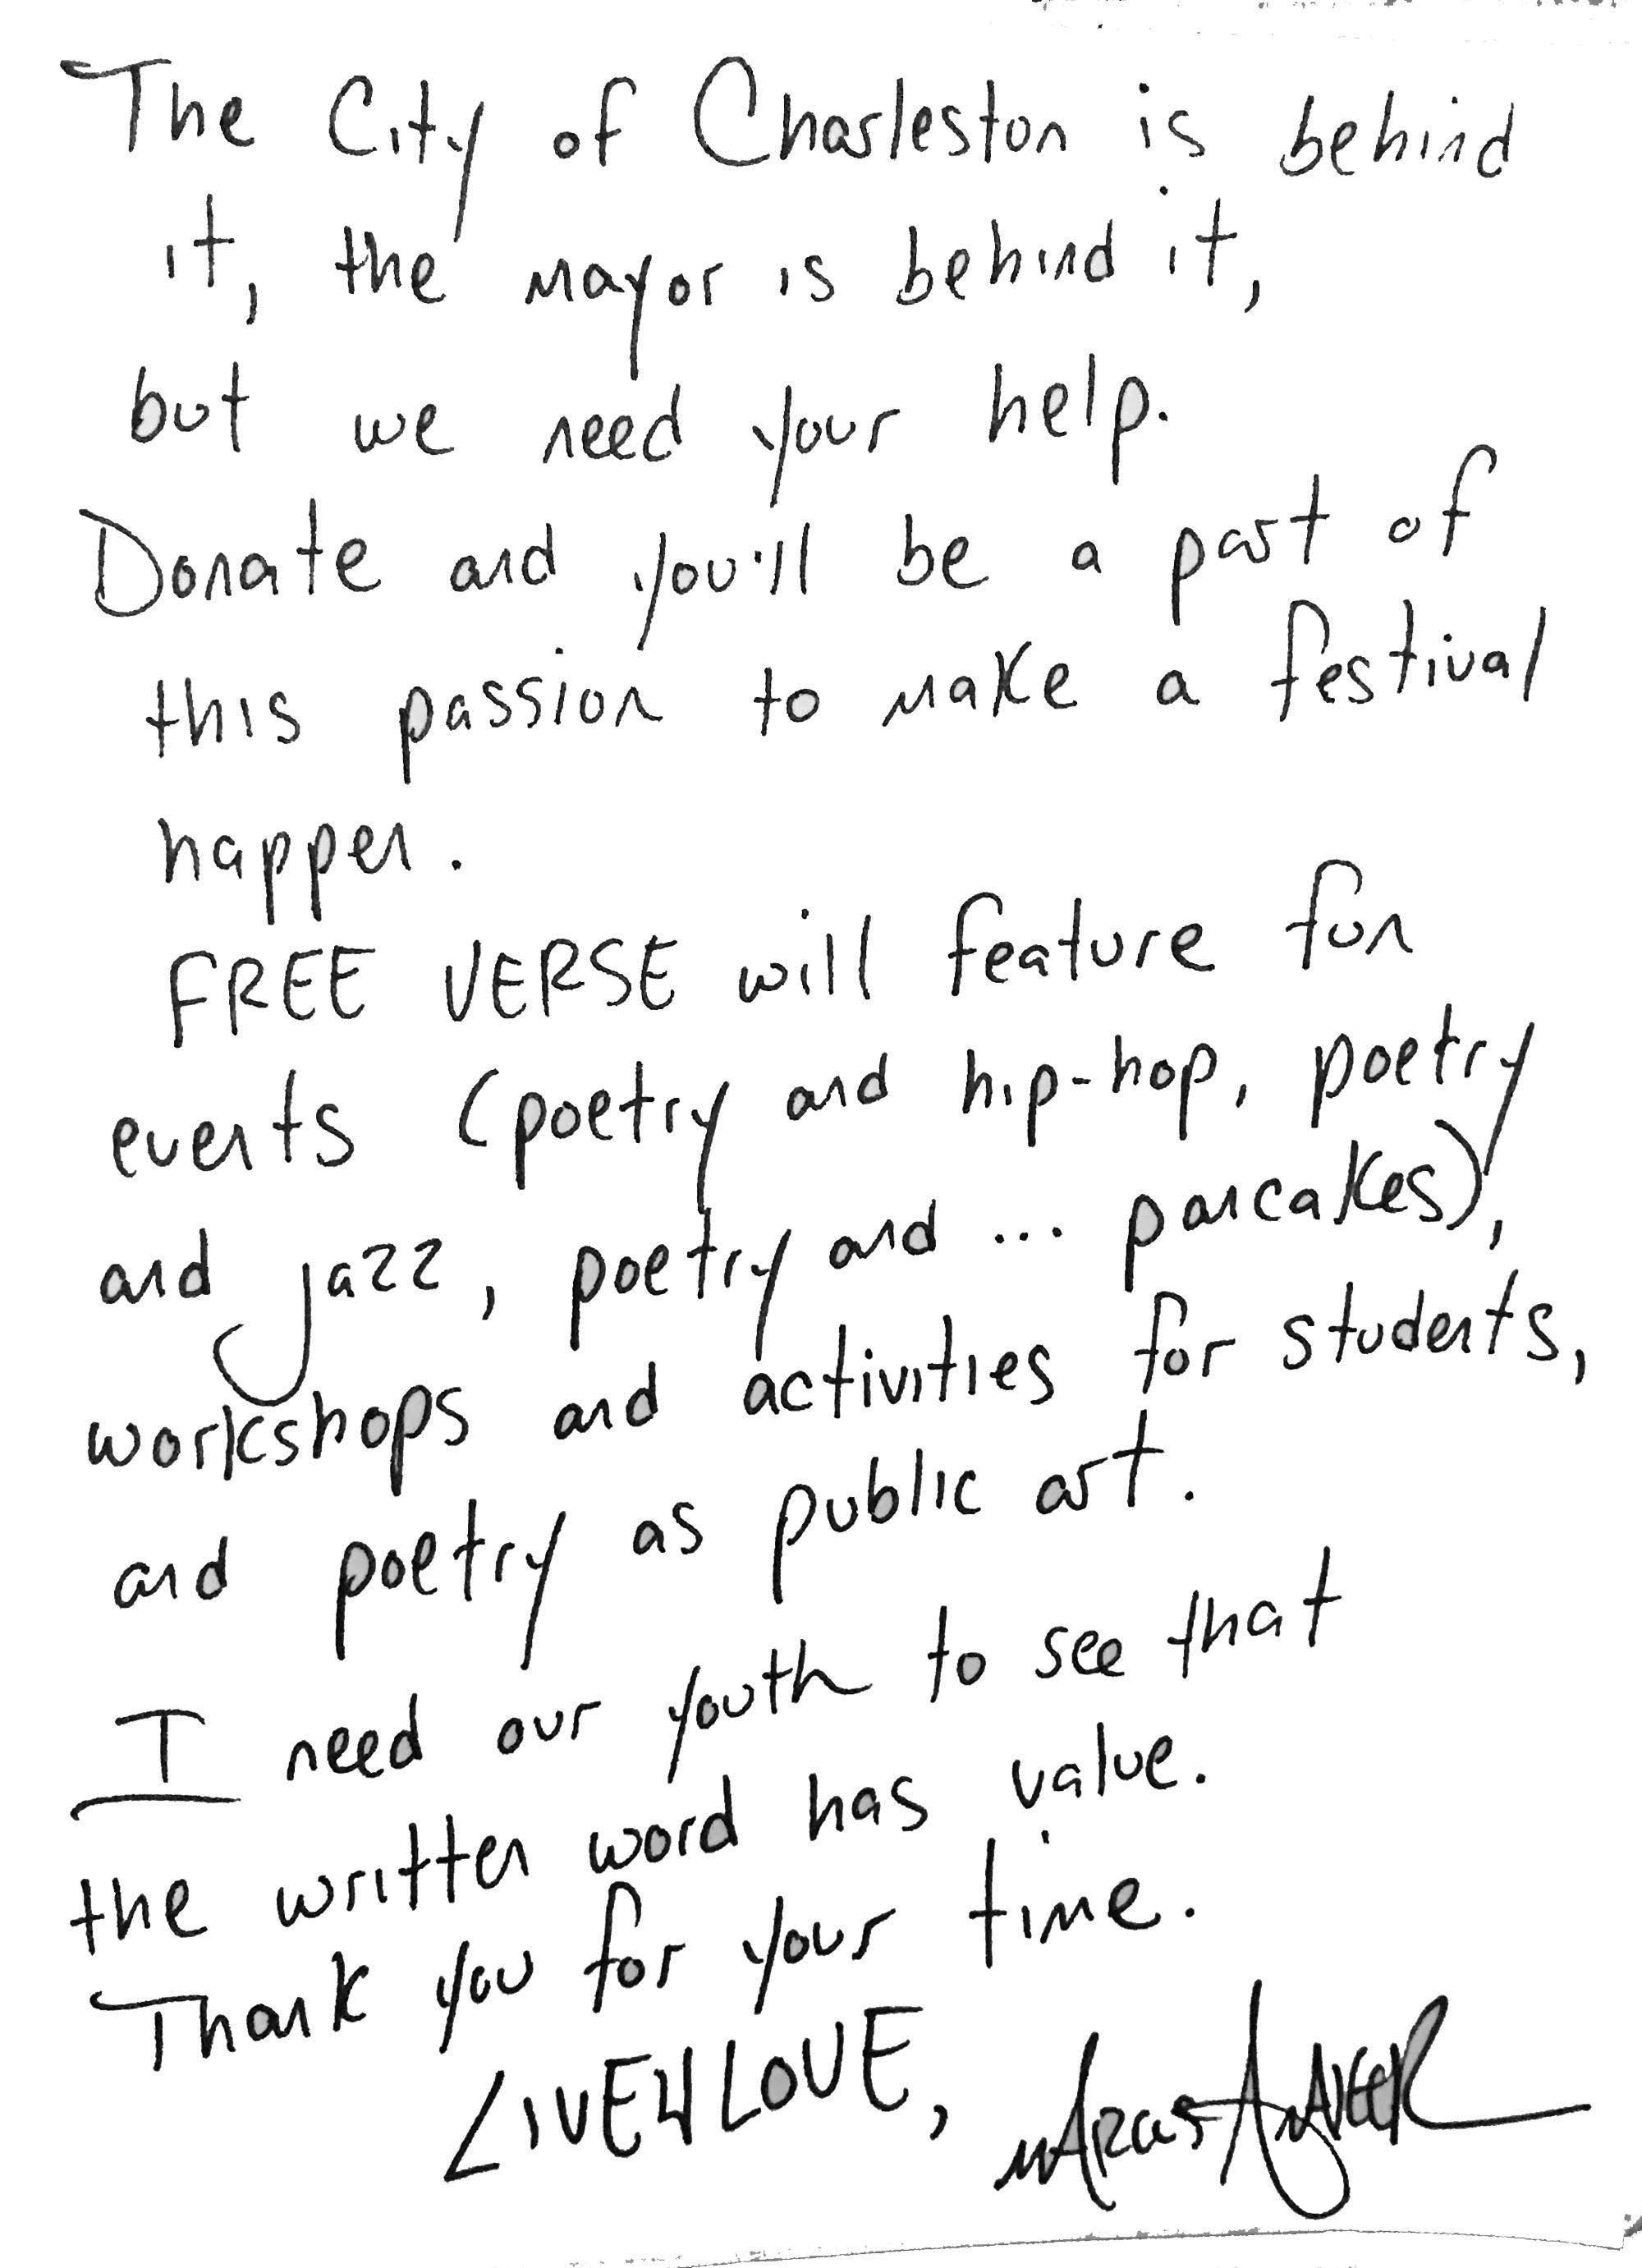 The City of Charleston is behind
it, the mayor is behind it,
but we need your help.
Donate and you'll be a part of
this passion to make a festival
happen.
FREE VERSE will feature fun
events (poetry and hip-hop, poetry
and jazz, poetry and ... pancakes),
workshops and activities for students,
and poetry as public art.
I need our youth to see that
the written word has value.
Thank you for your time.
LIVE4LOVE, MARCUS AMAKER